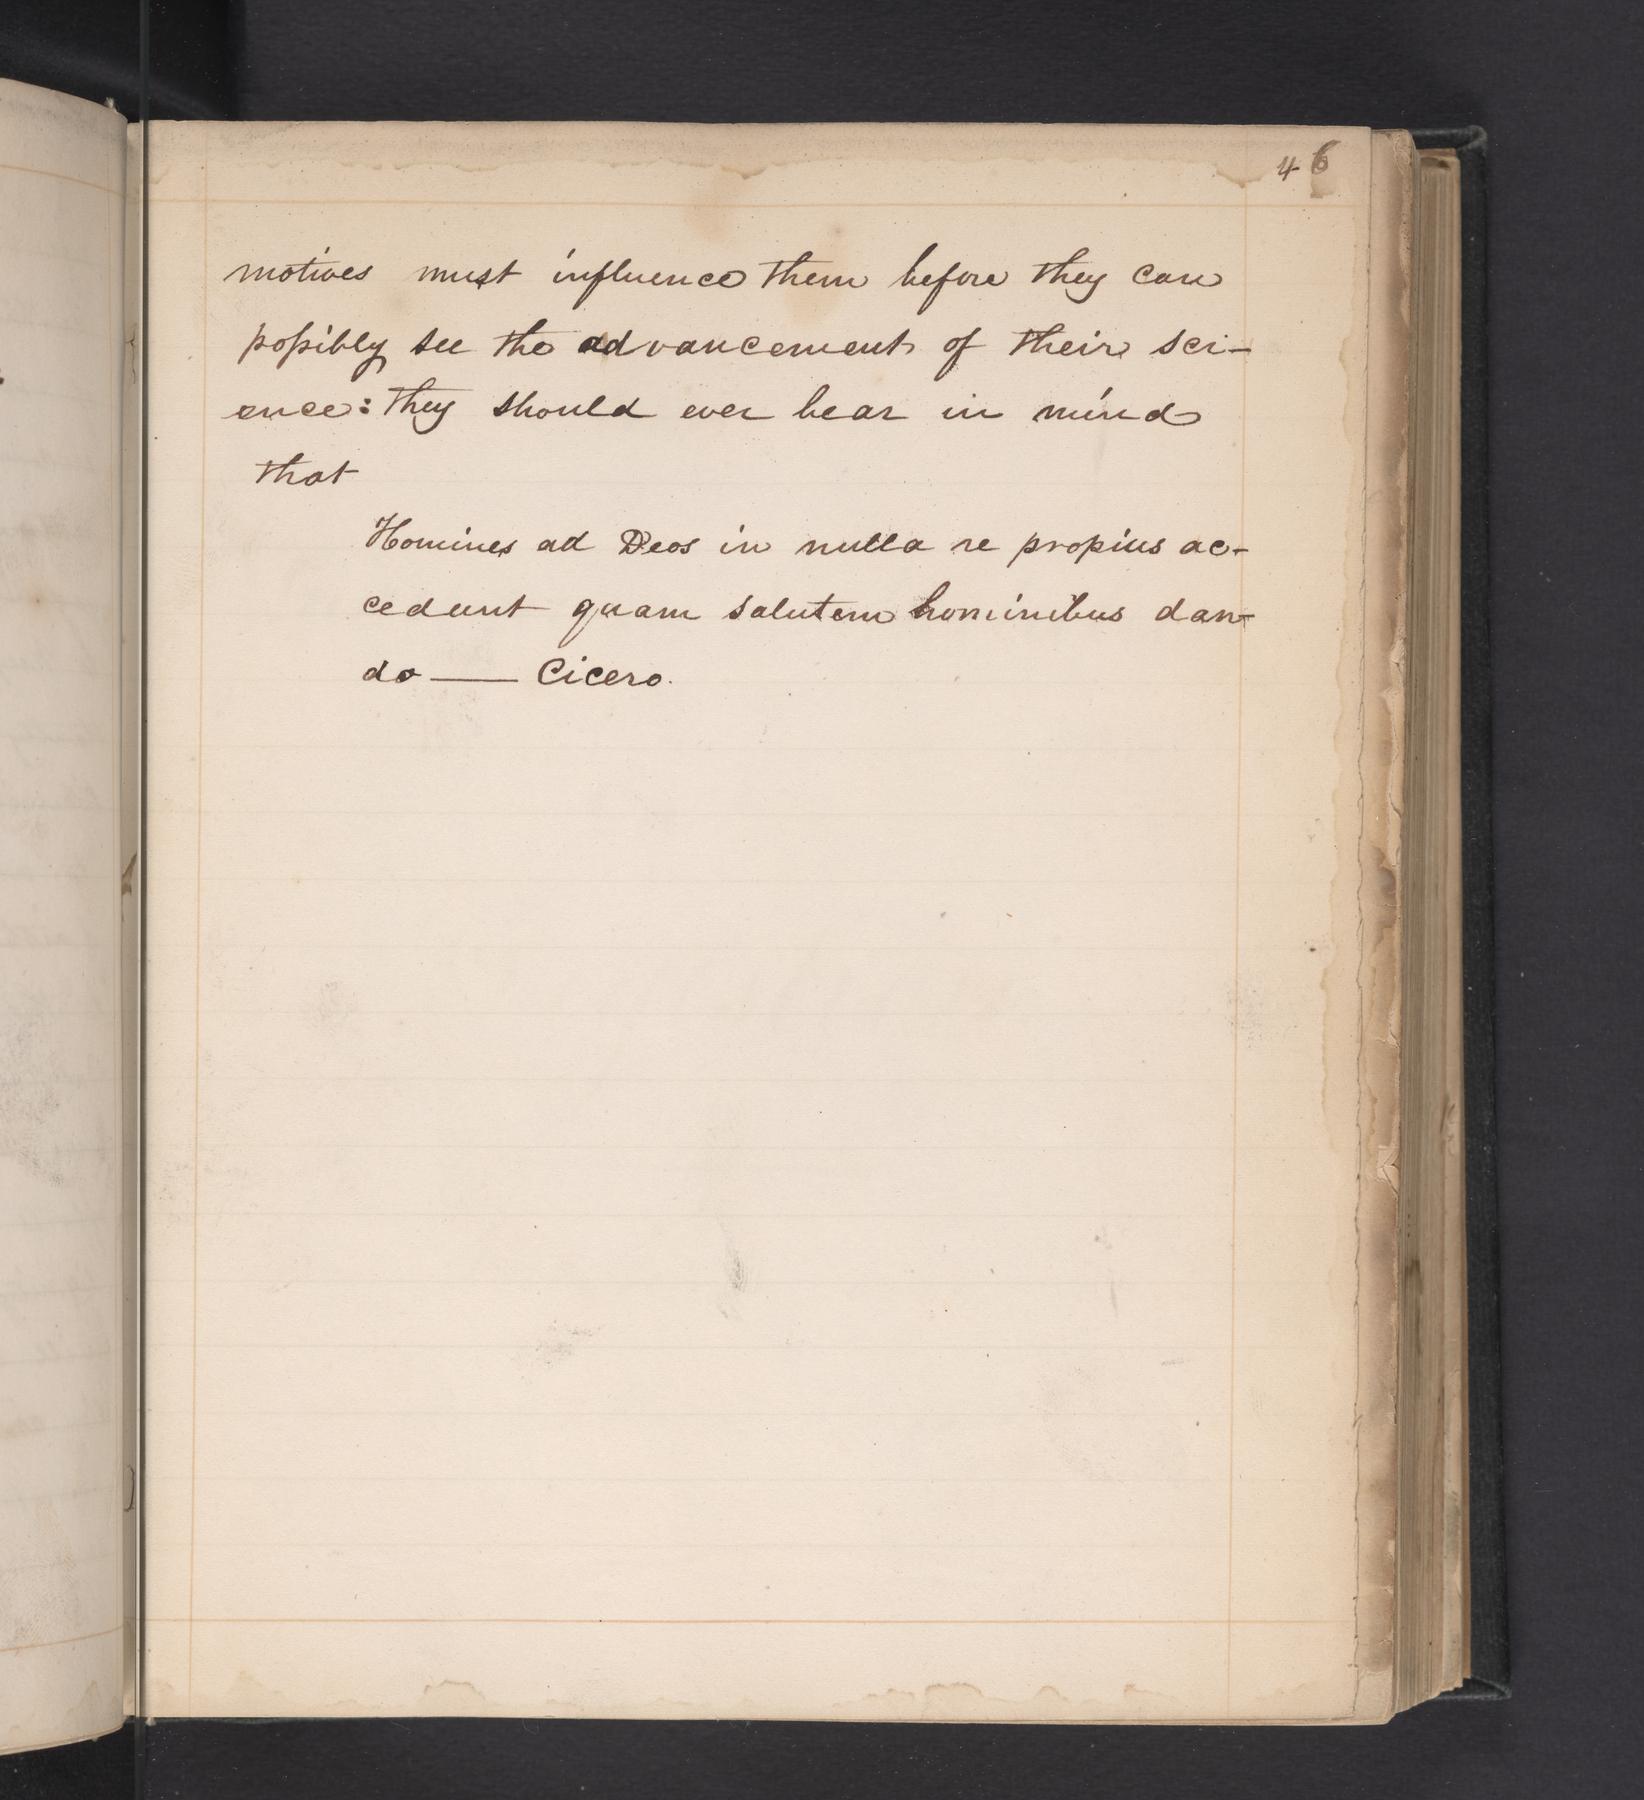 46
motives must influence them before they can
poſsibly see the advancement of their sci-
ence: they should ever bear in mind
that
Homines ad Deos in nulla re propius ac-
cedunt quam salutem hominibus dan-
do — Cicero.